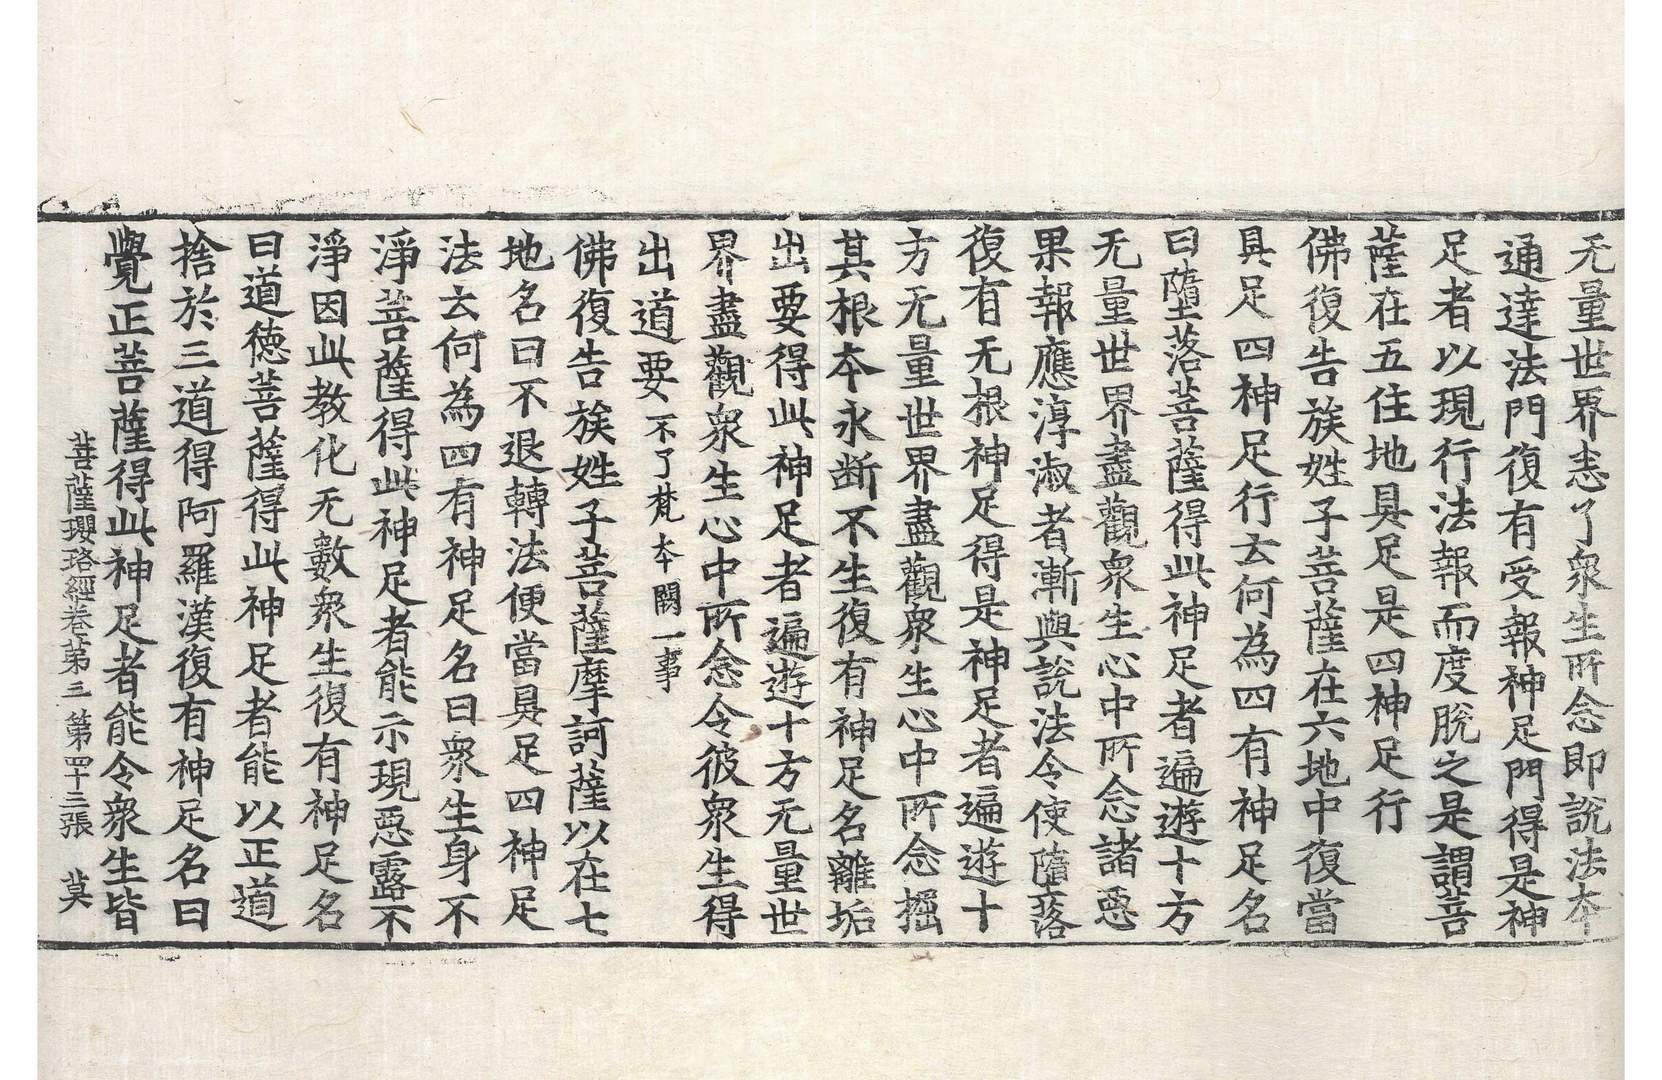 无量世界悉了衆生所念即說法本
通達法門復有受報神足門得是神
足者以現行法報而度脫之是謂菩
薩在五住地具足是四神足行
佛復告族姓子菩薩在六地中復當
具足四神足行云何為四有神足名
曰墮落菩薩得此神足者遍遊十方
无量世界盡觀衆生心中所念諸惡
果報應淳淑者漸與說法令使墮落
復有无根神足得是神足者遍遊十
方无量世界盡觀衆生心中所念掘
其根本永斷不生復有神足名離垢
出要得此神足者遍遊十方无量世
界盡觀衆生心中所念令彼衆生得
出道要不了梵本闕一事
佛復告族姓子菩薩摩訶薩以在七
地名曰不退轉法便當具足四神足
法云何為四有神足名曰衆生身不
淨菩薩得此神足者能示現惡露不
淨因此教化无數衆生復有神足名
曰道德菩薩得此神足者能以正道
捨於三道得阿羅漢復有神足名曰
覺正菩薩得此神足者能令衆生皆
菩薩瓔珞經卷第三 第四十三張 莫